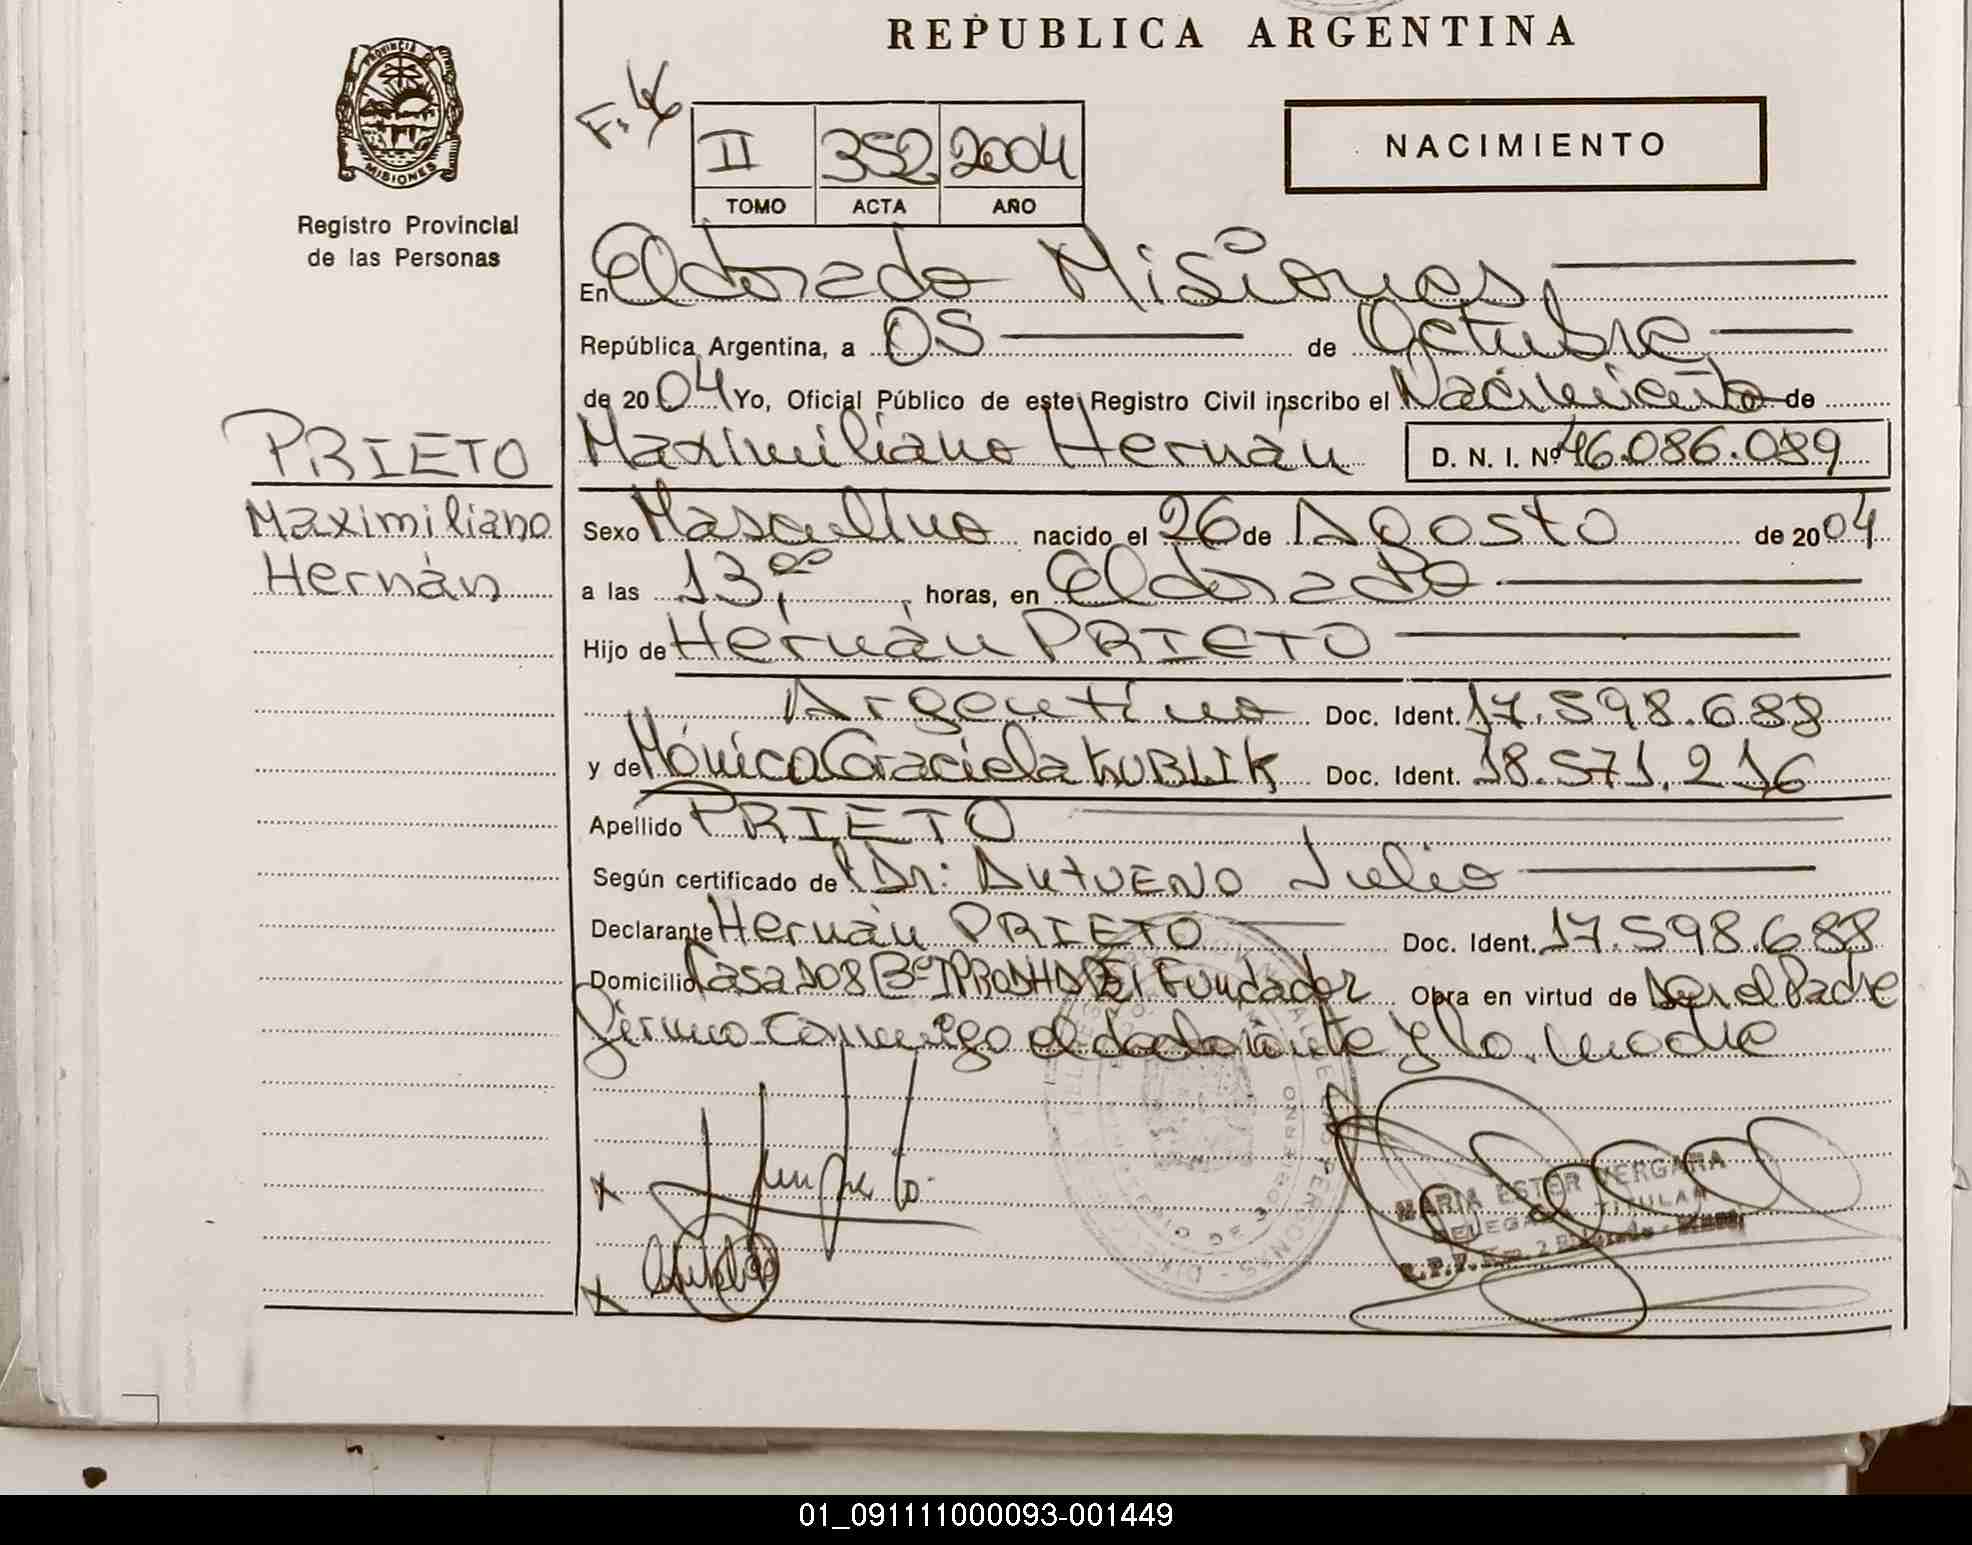 REPUBLICA ARGENTINA
PROVINCIA
MISIONES
Registro Provincial
de las Personas
II 352 2004
TOMO ACTA AÑO
NACIMIENTO
En Eldorado Misiones,
República Argentina, a 05 de Octubre
de 2004 Yo, Oficial Público de este Registro Civil inscribo el Nacimiento de
PRIETO
Maximiliano
Hernán
Maximiliano Hernán D. N. I. Nº 46.086.089
Sexo Masculino nacido el 26 de Agosto de 2004
a las 13,00, horas, en Eldorado
Hijo de Hernán PRIETO
Argentino Doc. Ident. 17.598.688
y de Mónica Graciela KUBLIK Doc. Ident. 18.571.216
Apellido PRIETO
Según certificado de Dr: Julio
Declarante Hernán PRIETO Doc. Ident. 17.598.688
Domicilio Casa 108 Bº Fundador Obra en virtud de Ser el Padre
firma conmigo el declarante y la madre
MARIA ESTER VERGARA
DELEGADA TITULAR
01_091111000093-001449